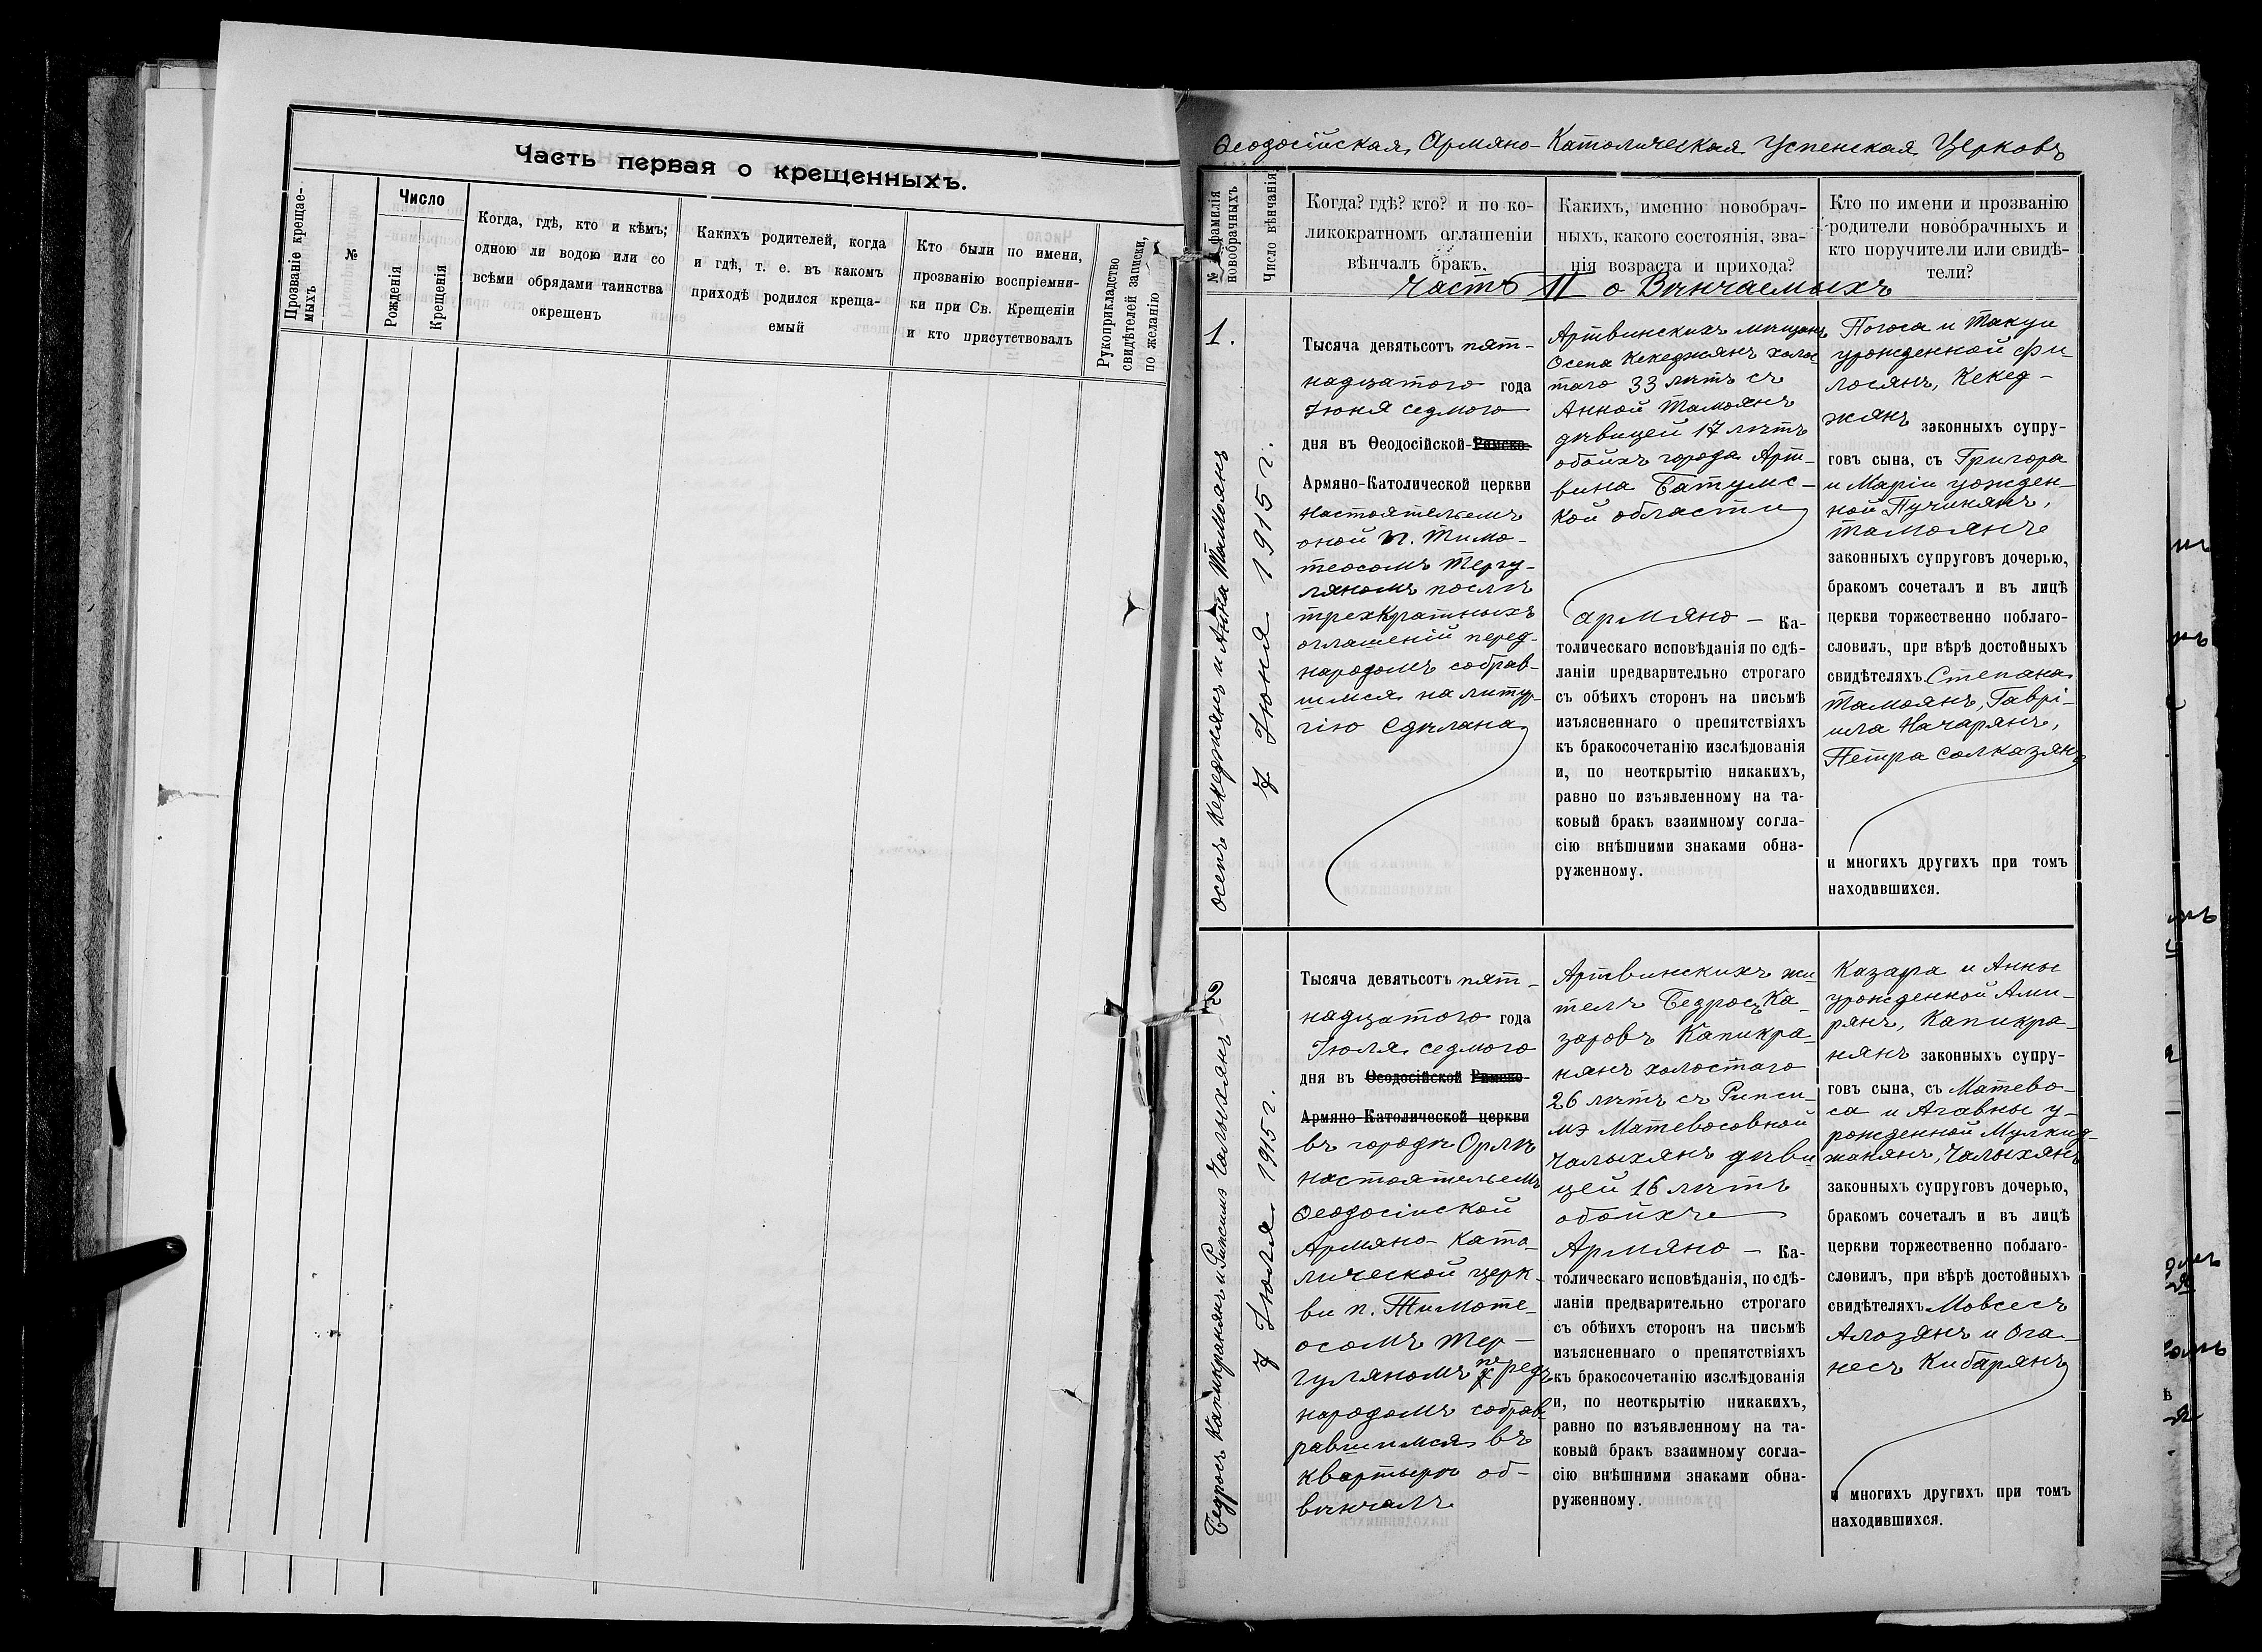 Часть первая о крещенныхъ.
Прозваніе крещае-
мыхъ
№
Число
Рожденія
Крещенія
Когда, гдѣ, кто и кѣмъ;
одною ли водою или со
всѣми обрядами таинства
окрещенъ
Какихъ родителей, когда
и гдѣ, т. е. въ какомъ
приходѣ родился креща-
емый
Кто были по имени,
прозванію воспріемни-
ки при Св. Крещеніи
и кто присутствовалъ
Рукоприкладство
свидѣтелей записки,
по желанію
Ѳеодосійская Армяно-Католическая Успенская Церковь
№ фамилія
новобрачныхъ
Число вѣнчанія
Когда? гдѣ? кто? и по ко-
ликократномъ оглашеніи
вѣнчалъ бракъ.
Какихъ, именно новобрач-
ныхъ, какого состоянія, зва-
нія возраста и прихода?
Кто по имени и прозванію
родители новобрачныхъ и
кто поручители или свидѣ-
тели?
Часть II о Вѣнчаемыхъ
1.
Осепъ Кекеджянъ и Анна Тамоянъ
7 Іюня 1915 г.
Тысяча девятьсотъ пят-
надцатого года
Іюня седмого
дня въ Ѳеодосійской Римско-
Армяно-Католической церкви
настоятелемъ
оной п. Тимо-
теосомъ Тергу-
ляномъ послѣ
трехкратныхъ
оглашеній перед-
народомъ собрав-
шимся на литур-
гію сдѣлана
Артвинскихъ мѣщанъ
Осепа Кекеджянъ холос-
таго 33 лѣтъ съ
Анной Тамоянъ
дѣвицей 17 лѣтъ
обоихъ города Арт-
вина Батумс-
кой области
армяно- Ка-
толическаго исповѣданія по сдѣ-
ланіи предварительно строгаго
съ обѣихъ сторонъ на письмѣ
изъясненнаго о препятствіяхъ
къ бракосочетанію изслѣдованія
и, по неоткрытію никакихъ,
равно по изъявленному на та-
ковый бракъ взаимному согла-
сію внѣшними знаками обна-
руженному.
Погоса и Такуи
урожденной Фи-
лосянъ, Кекед-
жянъ законныхъ супру-
говъ сына, съ Григора
и Маріи урожден-
ной Пучинянъ,
Тамоянъ
законныхъ супруговъ дочерью,
бракомъ сочеталъ и въ лицѣ
церкви торжественно поблаго-
словилъ, при вѣрѣ достойныхъ
свидѣтеляхъ Степана
Тамоянъ, Гаврі-
ила Начарянъ,
Петра Солказянъ
и многихъ другихъ при томъ
находившихся.
2
Бедросъ Капикранянъ и Рипсимэ Чалыхянъ
7 Іюля 1915 г.
Тысяча девятьсотъ пят-
надцатого года
Іюля седмого
дня въ Ѳеодосійской Римско-
Армяно-Католической церкви
въ городѣ Орлѣ
настоятелемъ
Ѳеодосійской
Армяно-Като-
лической церк-
ви п. Тимоте-
осомъ Тер-
гуляномъ передъ
народомъ собрав-
равшимся въ
квартьерѣ об-
вѣнчалъ
Артвинскихъ жи-
телъ Бедросъ Ка-
заровъ Капикра-
нянъ холостаго
26 лѣтъ съ Рипси-
мэ Матевосовной
Чалыхянъ дѣви-
цей 16 лѣтъ
обоихъ
Армяно- Ка-
толическаго исповѣданія, по сдѣ-
ланіи предварительно строгаго
съ обѣихъ сторонъ на письмѣ
изъясненнаго о препятствіяхъ
къ бракосочетанію изслѣдованія
и, по неоткрытію никакихъ,
равно по изъявленному на та-
ковый бракъ взаимному согла-
сію внѣшними знаками обна-
руженному.
Казара и Анны
урожденной Ами-
рянъ, Капикра-
нянъ законныхъ супру-
говъ сына, съ Матево-
са и Агавны у-
рожденной Мулкид-
жанянъ, Чалыхянъ
законныхъ супруговъ дочерью,
бракомъ сочеталъ и въ лицѣ
церкви торжественно поблаго-
словилъ, при вѣрѣ достойныхъ
свидѣтеляхъ Мовсесъ
Алозянъ и Ога-
несъ Кибарянъ
и многихъ другихъ при томъ
находившихся.